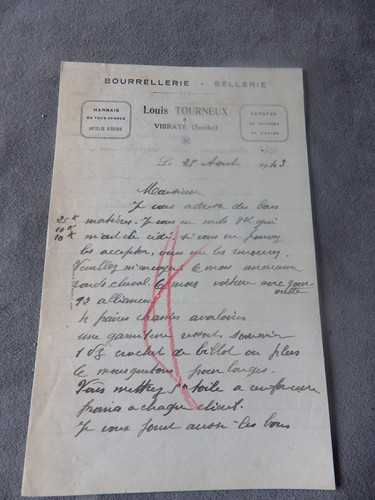 BOURRELLERIE - SELLERIE
HARNAIS
EN TOUS GENRES
ARTICLES D'ÉCURIE
Louis TOURNEUX
A
VIBRAYE (Sarthe)
CAPOTES
DE VOITURES
ET D'AUTOS
Le 25 Août 1943
Monsieur
Je vous adresse des bons
25 K matières. Je vous en mets 8K qui
10 K m'ont été cédé, si vous ne pouvez
10 K les accepter, vous me les renverrez.
Veuillez m'envoyer 6 mors anneaux
ronds cheval. 6 mors voiture avec
93 alliances
4 paires chaines avaloires
une garniture ressort sommier
1 Dz crochet de billot ou plus
le mousquetons pour longes.
Vous mettrez toile a
a chaque client.
Je vous joint aussi les bons